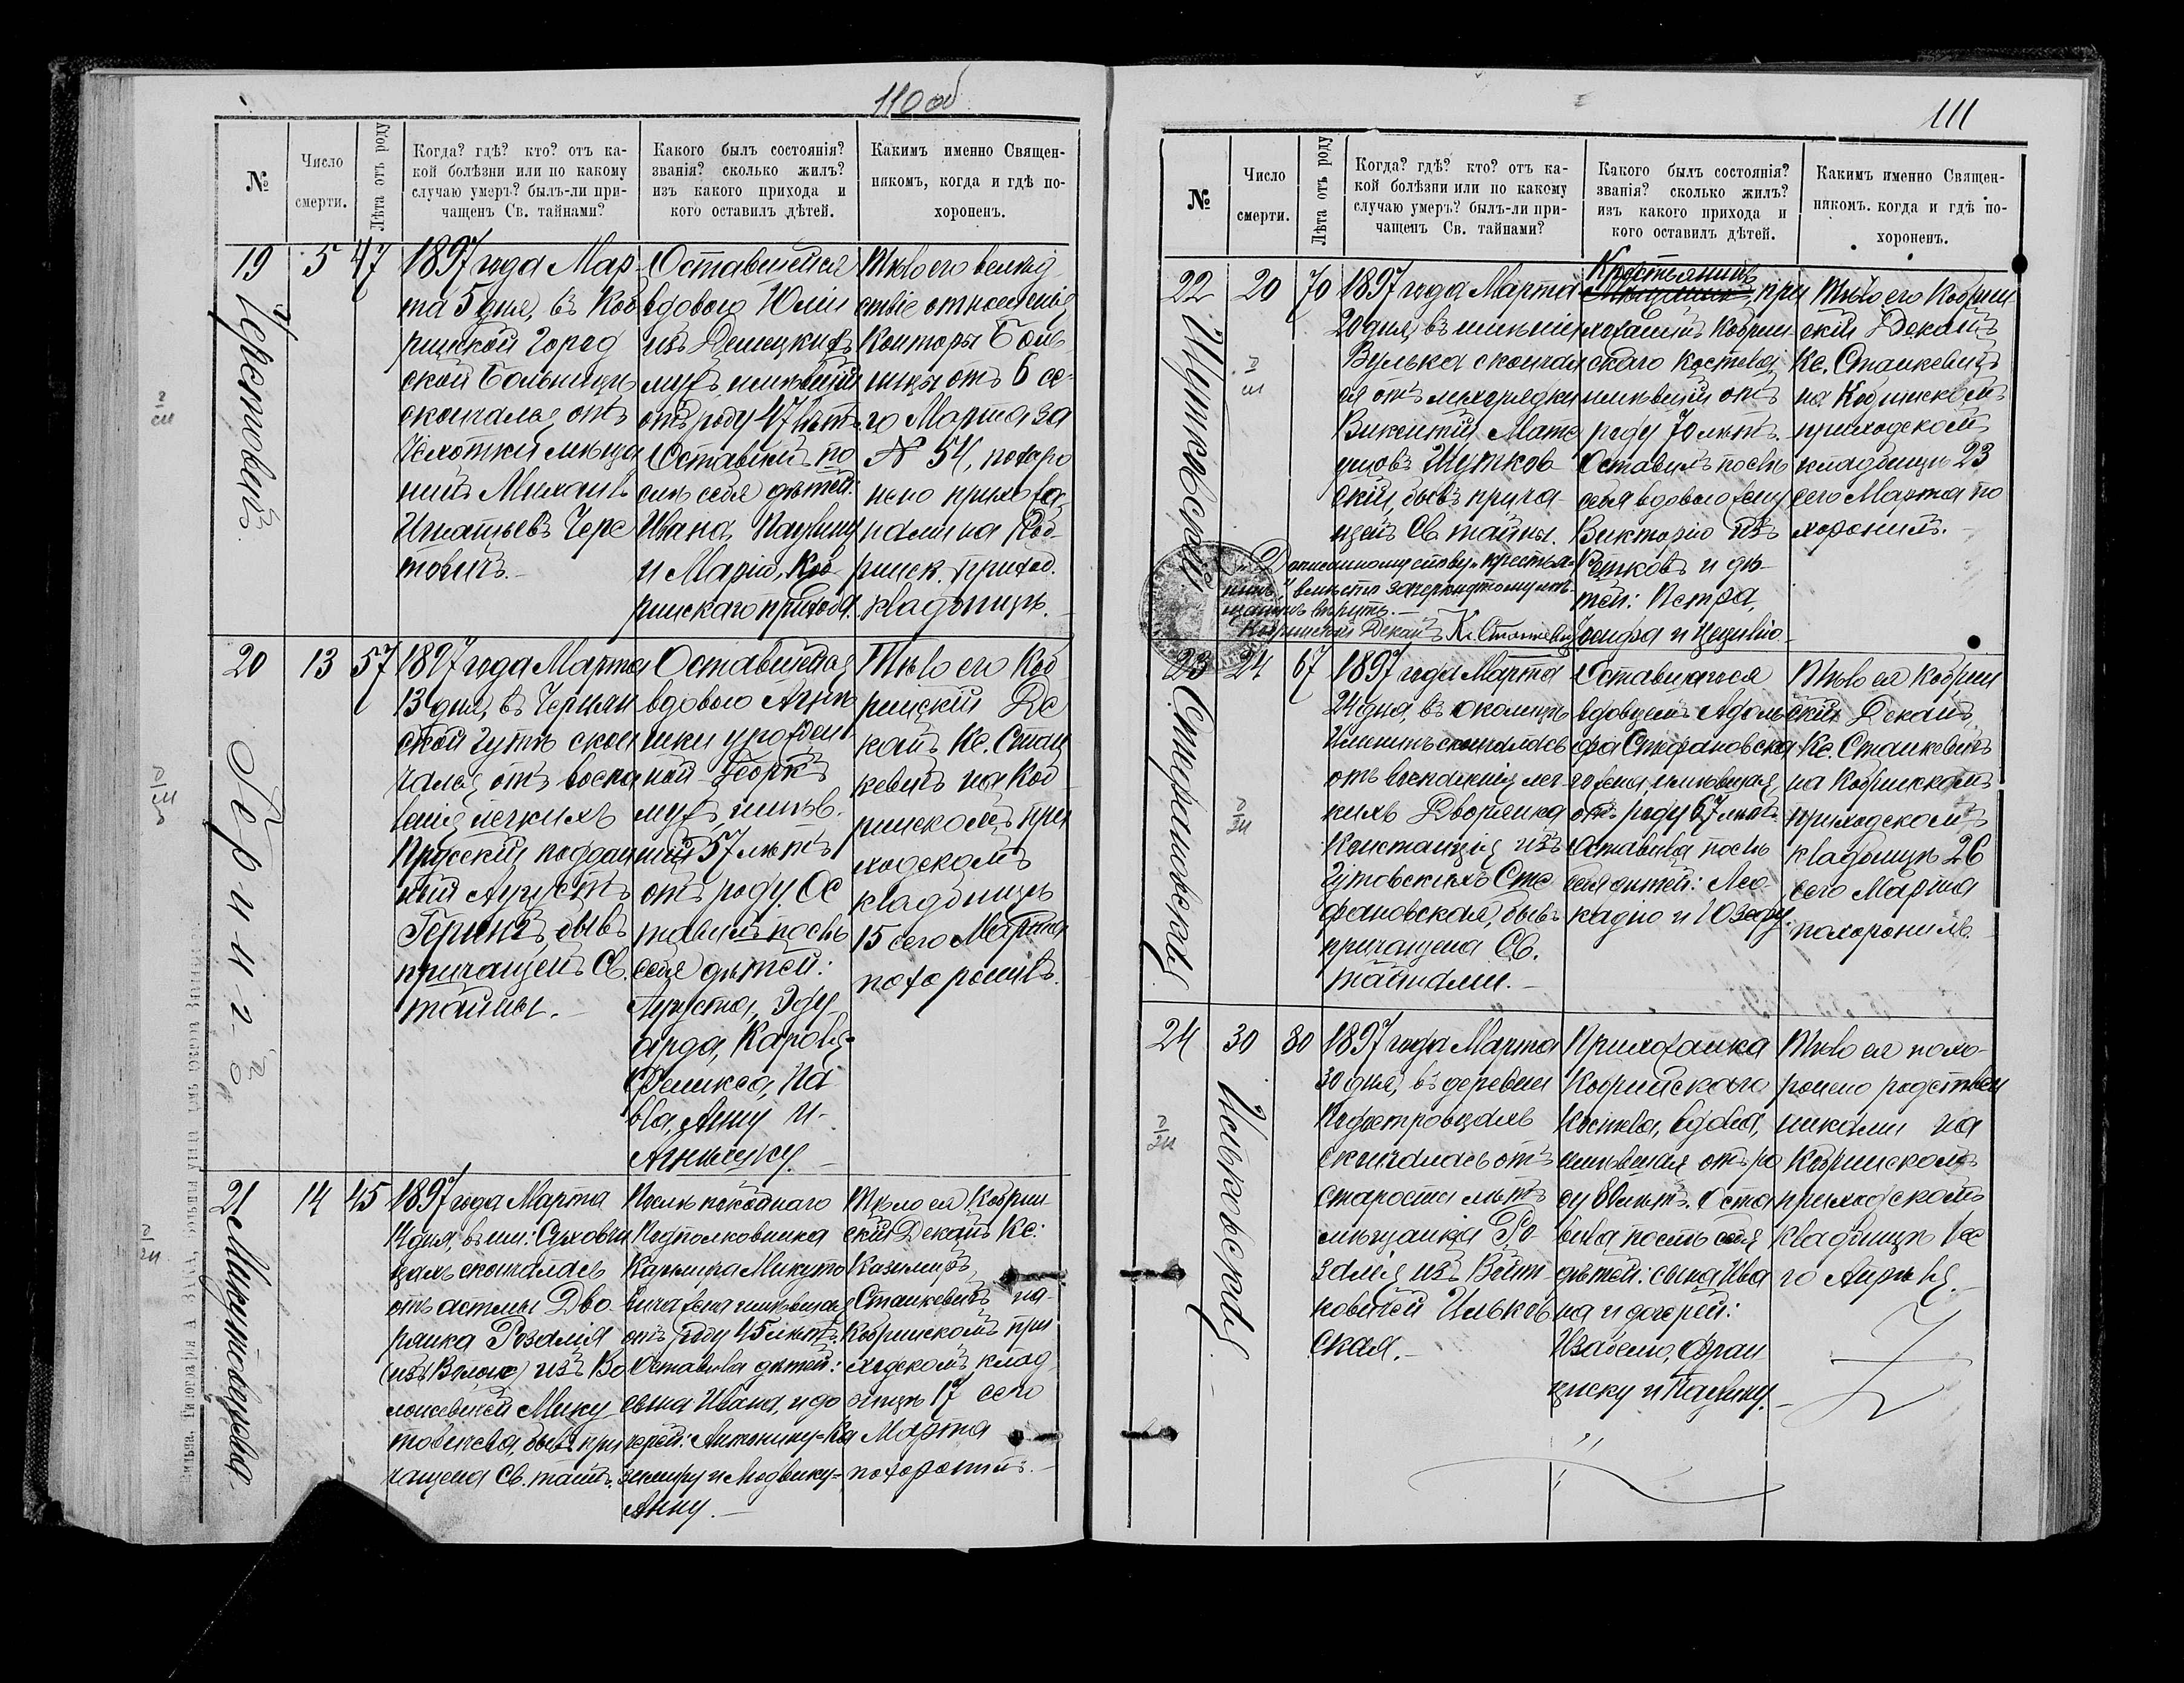 110 об
№
Число
смерти.
Лѣта отъ роду
Когда? гдѣ? кто? отъ ка-
кой болѣзни или по какому
случаю умеръ? былъ-ли при-
чащенъ Св. тайнами?
Какого былъ состоянія?
званія? сколько жилъ?
изъ какого прихода и
кого оставилъ дѣтей.
Какимъ именно Священ-
никомъ, когда и гдѣ по-
хороненъ.
19
Черетовичъ
5
47
1897 года Мар
та 5 дня, въ Коб
ринской Город
ской Больницѣ
скончался отъ
Чахотки мѣща
нинъ Михаилъ
Игнатьевъ Чере
товичъ.
Оставшейся
вдовою Юліи
изъ
мужъ, имѣвшій
отъ роду 47 лѣтъ
Оставивъ по
слѣ себя дѣтей:
Ивана, Паулину
и Марію, Коб
ринскаго прихода.
Тѣло его вслѣд
ствіе отношенія
Конторы Боль
ницы отъ 6 се-
го Марта за
№ 54, похоро
нено прихожа
нами на Коб-
ринск. приход.
кладбищѣ.
20
Герингъ
13
57
1897 года Марта
13 дня, въ Черням
ской Гутѣ скон
чался отъ воспа
ленія легкихъ
Прусскій поддан
ный Августъ
Герингъ, бывъ
причащенъ Св.
тайны.
Оставшейся
вдовою Агнѣ
шки урожден
ной Георкъ
мужъ, имѣв-
шій 57 лѣтъ
отъ роду. Ос
тавилъ послѣ
себя дѣтей:
Августа, Эду
арда, Кароля
Феликса, Па
вла, Анну и
Агнѣшку.
Тѣло его Коб
ринскій Де
канъ Кс. Стан
кевичъ на Коб
ринскомъ при
ходскомъ
кладбищѣ
15 сего Марта
похоронилъ.
21
Микутовичева
14
45
1897 года Марта
14 дня, въ им: Суховчи
цахъ скончалась
отъ астмы Дво
рянка Розалія
изъ Во
лонсевичей Мику
товичева, бывъ при
чащена Св. тайн.
Послѣ покойнаго
Подполковника
Казимира Микуто
вича жена имѣвшая
отъ роду 45 лѣтъ.
Оставила дѣтей:
сына Ивана, и до
черей: Антонину-Ка
зимиру и Людвику-
Анну.
Тѣло ея Кобрин
скій Деканъ Кс:
Казимиръ
Станкевичъ на
Кобринскомъ при
ходскомъ клад
бищѣ 17 сего
Марта
похоронилъ.
111
№
Число
смерти.
Лѣта отъ роду
Когда? гдѣ? кто? отъ ка-
кой болѣзни или по какому
случаю умеръ? былъ-ли при-
чащенъ Св. тайнами?
Какого былъ состоянія?
званія? сколько жилъ?
изъ какого прихода и
кого оставилъ дѣтей.
Какимъ именно Священ-
никомъ. когда и гдѣ по-
хороненъ.
22
Шутковскій
20
70
1897 года Марта
20 дня, въ имѣніи
Вулька сконча
ся отъ лихорадки
Викентій Мате
ушовъ Шутков
скій, бывъ прича-
щенъ Св. тайны.
Дописанному слову "крестья-
нинъ", вмѣсто зачеркнутому мѣ-
щанинъ вѣрить.
Кобринскій Деканъ Кс. Станкевичъ
Крестьянинъ
Мѣщанинъ, при
хожанинъ Кобрин
скаго костела
имѣвшій отъ
роду 70 лѣтъ.
Оставилъ послѣ
себя вдовою жену
Викторію изъ
и дѣ-
тей: Петра,
Іосифа и Цецилію
Тѣло его Кобрин
скій Деканъ
Кс. Станкевичъ
на Кобринскомъ
приходскомъ
кладбищѣ 23
сего Марта по
хоронилъ.
23
Стефановская
24
67
1897 года Марта
24 дня, въ околицѣ
скончалась
отъ воспаленія лег-
кихъ Дворянка
Констанція изъ
Гутовскихъ Сте
фановская, бывъ
причащена Св.
тайнами.
Оставшагося
вдовцемъ Адоль
фа Стефановска
го жена, имѣвшая
отъ роду 67 лѣтъ
Оставила послѣ
себя дѣтей: Лео-
кадію и Юзефу.
Тѣло ея Кобрин
скій Деканъ,
Кс. Станкевичъ
на Кобринскомъ
приходскомъ
кладбищѣ 26
сего Марта
похоронилъ.
24
Ильковская
30
80
1897 года Марта
30 дня, въ деревни
Подостровцахъ
скончалась отъ
старости лѣтъ
мѣщанка Ро-
залія изъ Войт-
ковичей Ильков
ская.
Прихожанка
Кобринскаго
Костела, вдова,
имѣвшая отъ ро
ду 80 лѣтъ. Оста
вила послѣ себя
дѣтей: сына Ива
на и дочерей:
Изабелю, Фран
циску и Паулину.
Тѣло ея похо-
ронено родствен
никами на
Кобринскомъ
приходскомъ
кладбищѣ 1 се
го Апрѣля.